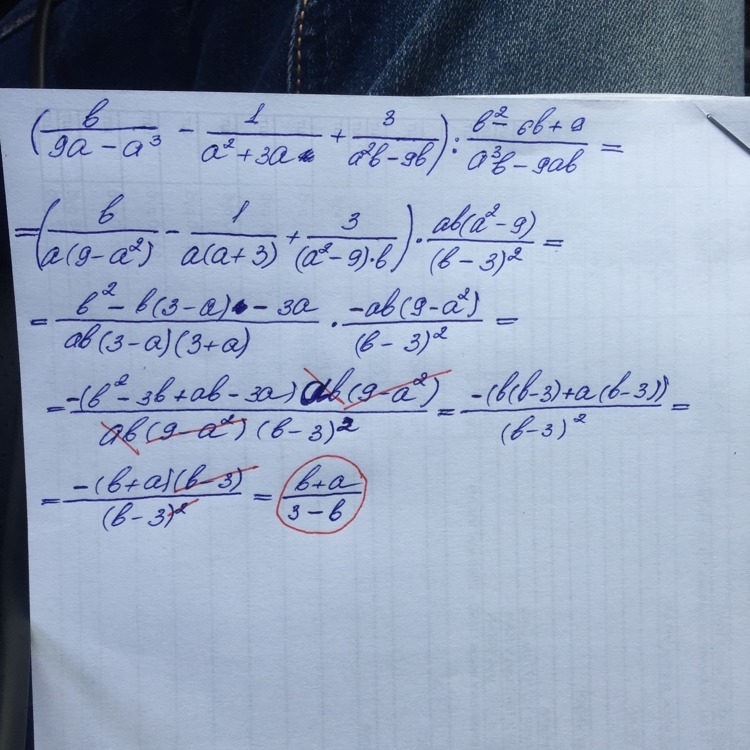 (b/(9a − a³) − 1/(a² + 3a) + 3/(a²b − 9b)) : (b² − 6b + 9)/(a³b − 9ab) =
= (b/(a(9 − a²)) − 1/(a(a + 3)) + 3/((a² − 9)·b)) · ab(a² − 9)/(b − 3)² =
= (b² − b(3 − a) − 3a)/(ab(3 − a)(3 + a)) · −ab(9 − a²)/(b − 3)² =
= −(b² − 3b + ab − 3a) ab(9 − a²)/(ab(9 − a²)(b − 3)²) = −(b(b − 3) + a(b − 3))/(b − 3)² =
= −(b + a)(b − 3)/(b − 3)² = (b + a)/(3 − b)